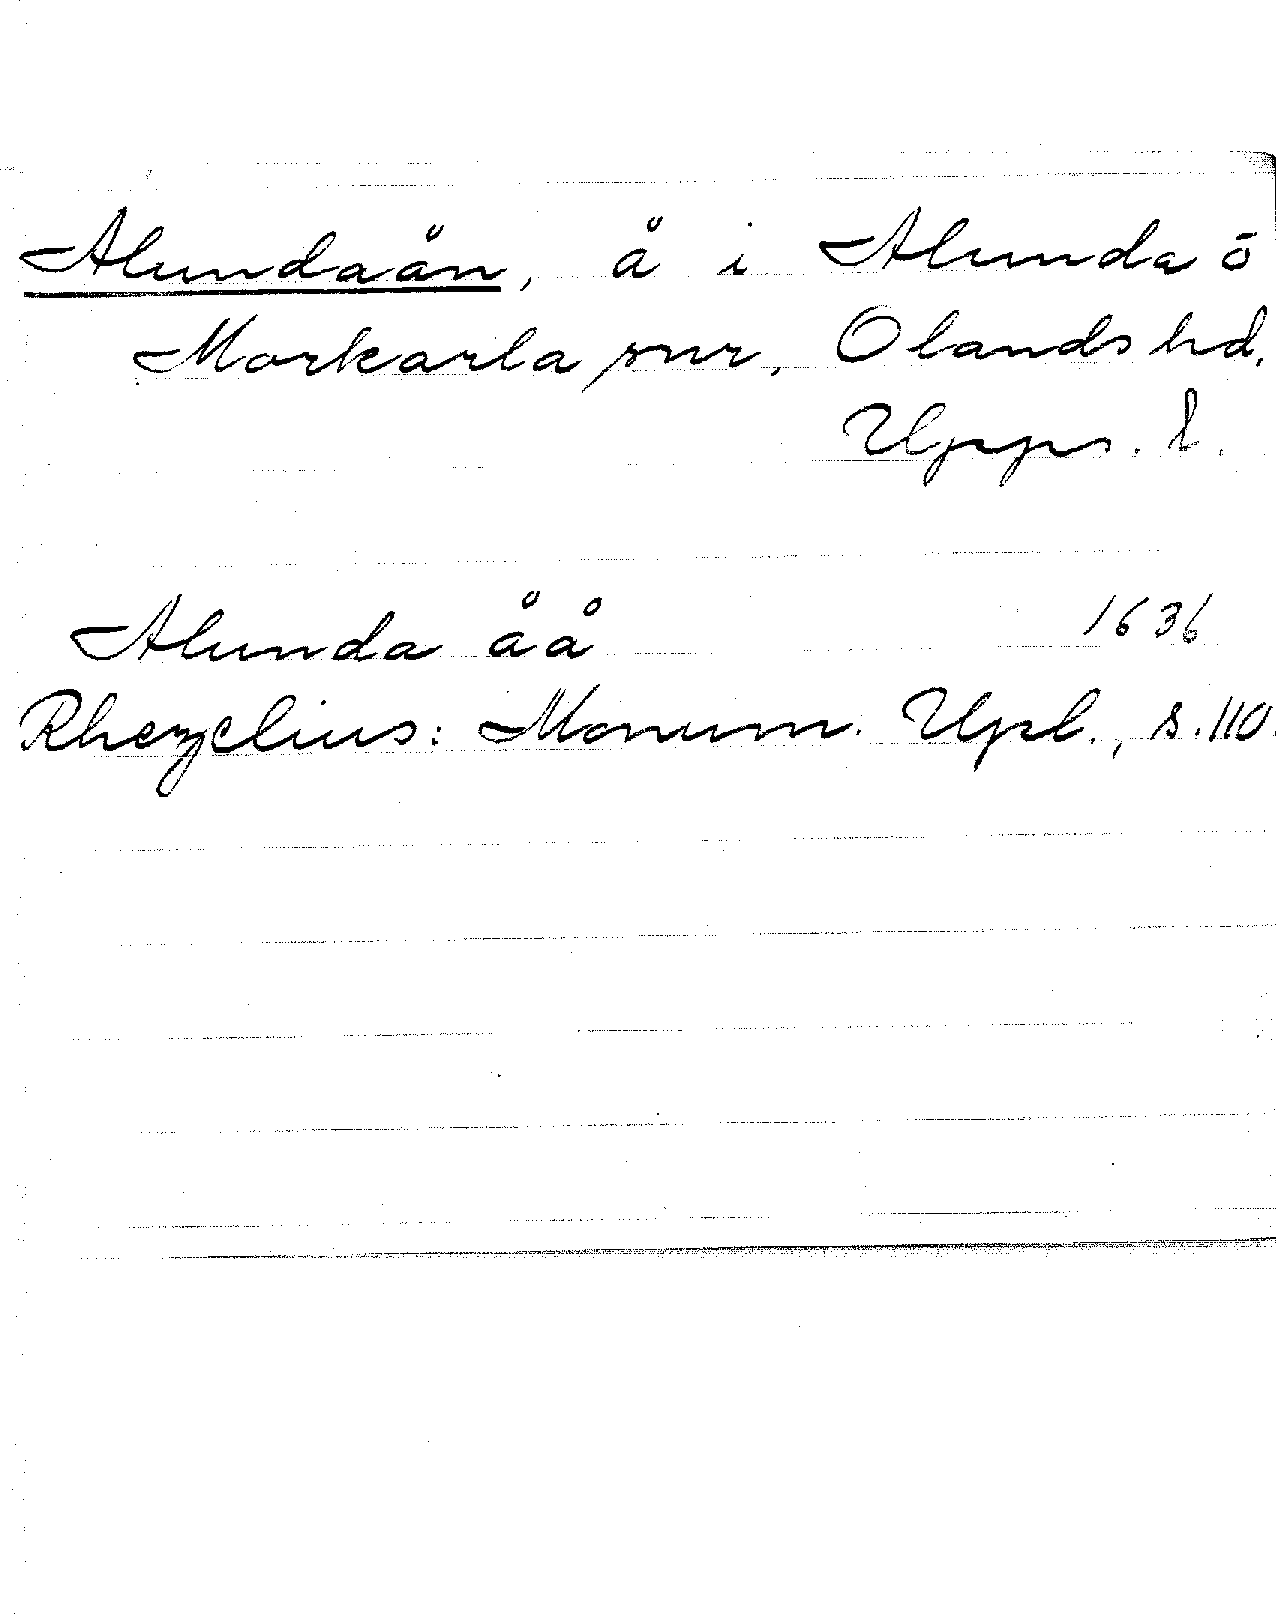 Alundaån, å i Alunda o
Morkarla snr, Olands hd,
Upps. l.
Alunda åå 1636
Rhezelius: Monum. Upl., s. 110.